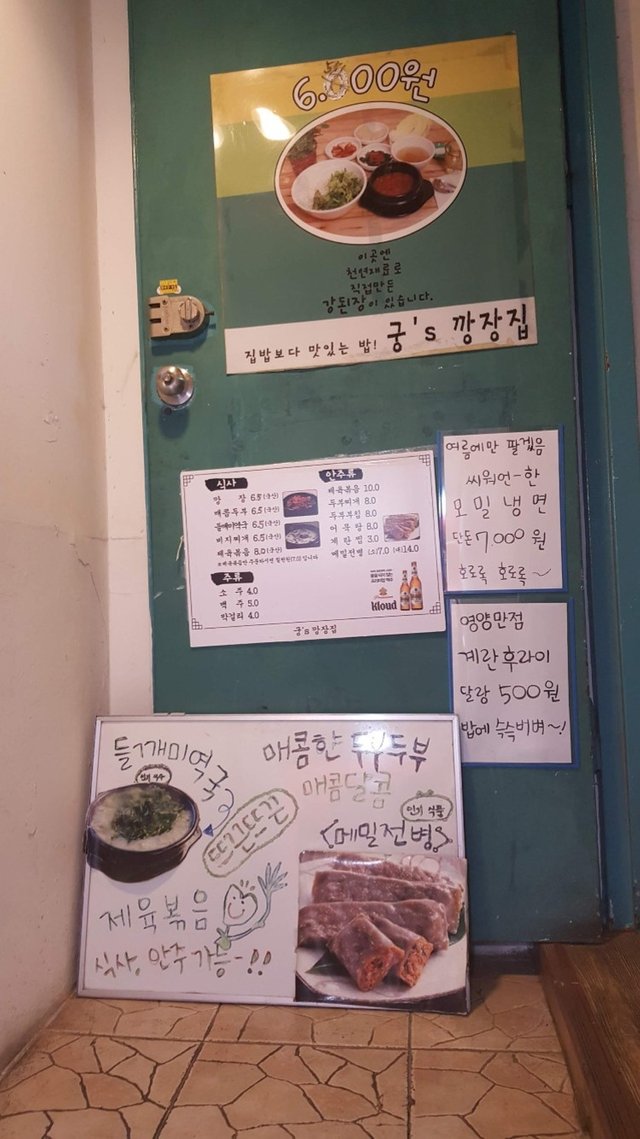 6.500원
이곳엔
천연재료로
직접만든
강된장이 있습니다.
집밥보다 맛있는 밥! 궁's 깡장집
식사
깡 장 6.5 (국산)
매콤두부 6.5 (국산)
들깨미역국 6.5 (국산)
비지찌개 6.5 (국산)
제육볶음 8.0 (국산)
주류
소 주 4.0
맥 주 5.0
막걸리 4.0
안주류
제육볶음 10.0
두부찌개 8.0
두부부침 8.0
어묵탕 8.0
계란찜 3.0
메밀전병 (소)7.0 (대)14.0
kloud
궁's 깡장집
여름에만 팔겠음
씨워언-한
모밀냉면
단돈 7.000 원
호로록 호로록~
영양만점
계란후라이
달랑 500원
밥에 슥슥비벼~!
들깨미역국
매콤한 두부두부
매콤달콤
뜨끈뜨끈
인기 식품
<메밀전병>
제육볶음
식사, 안주 가능-!!